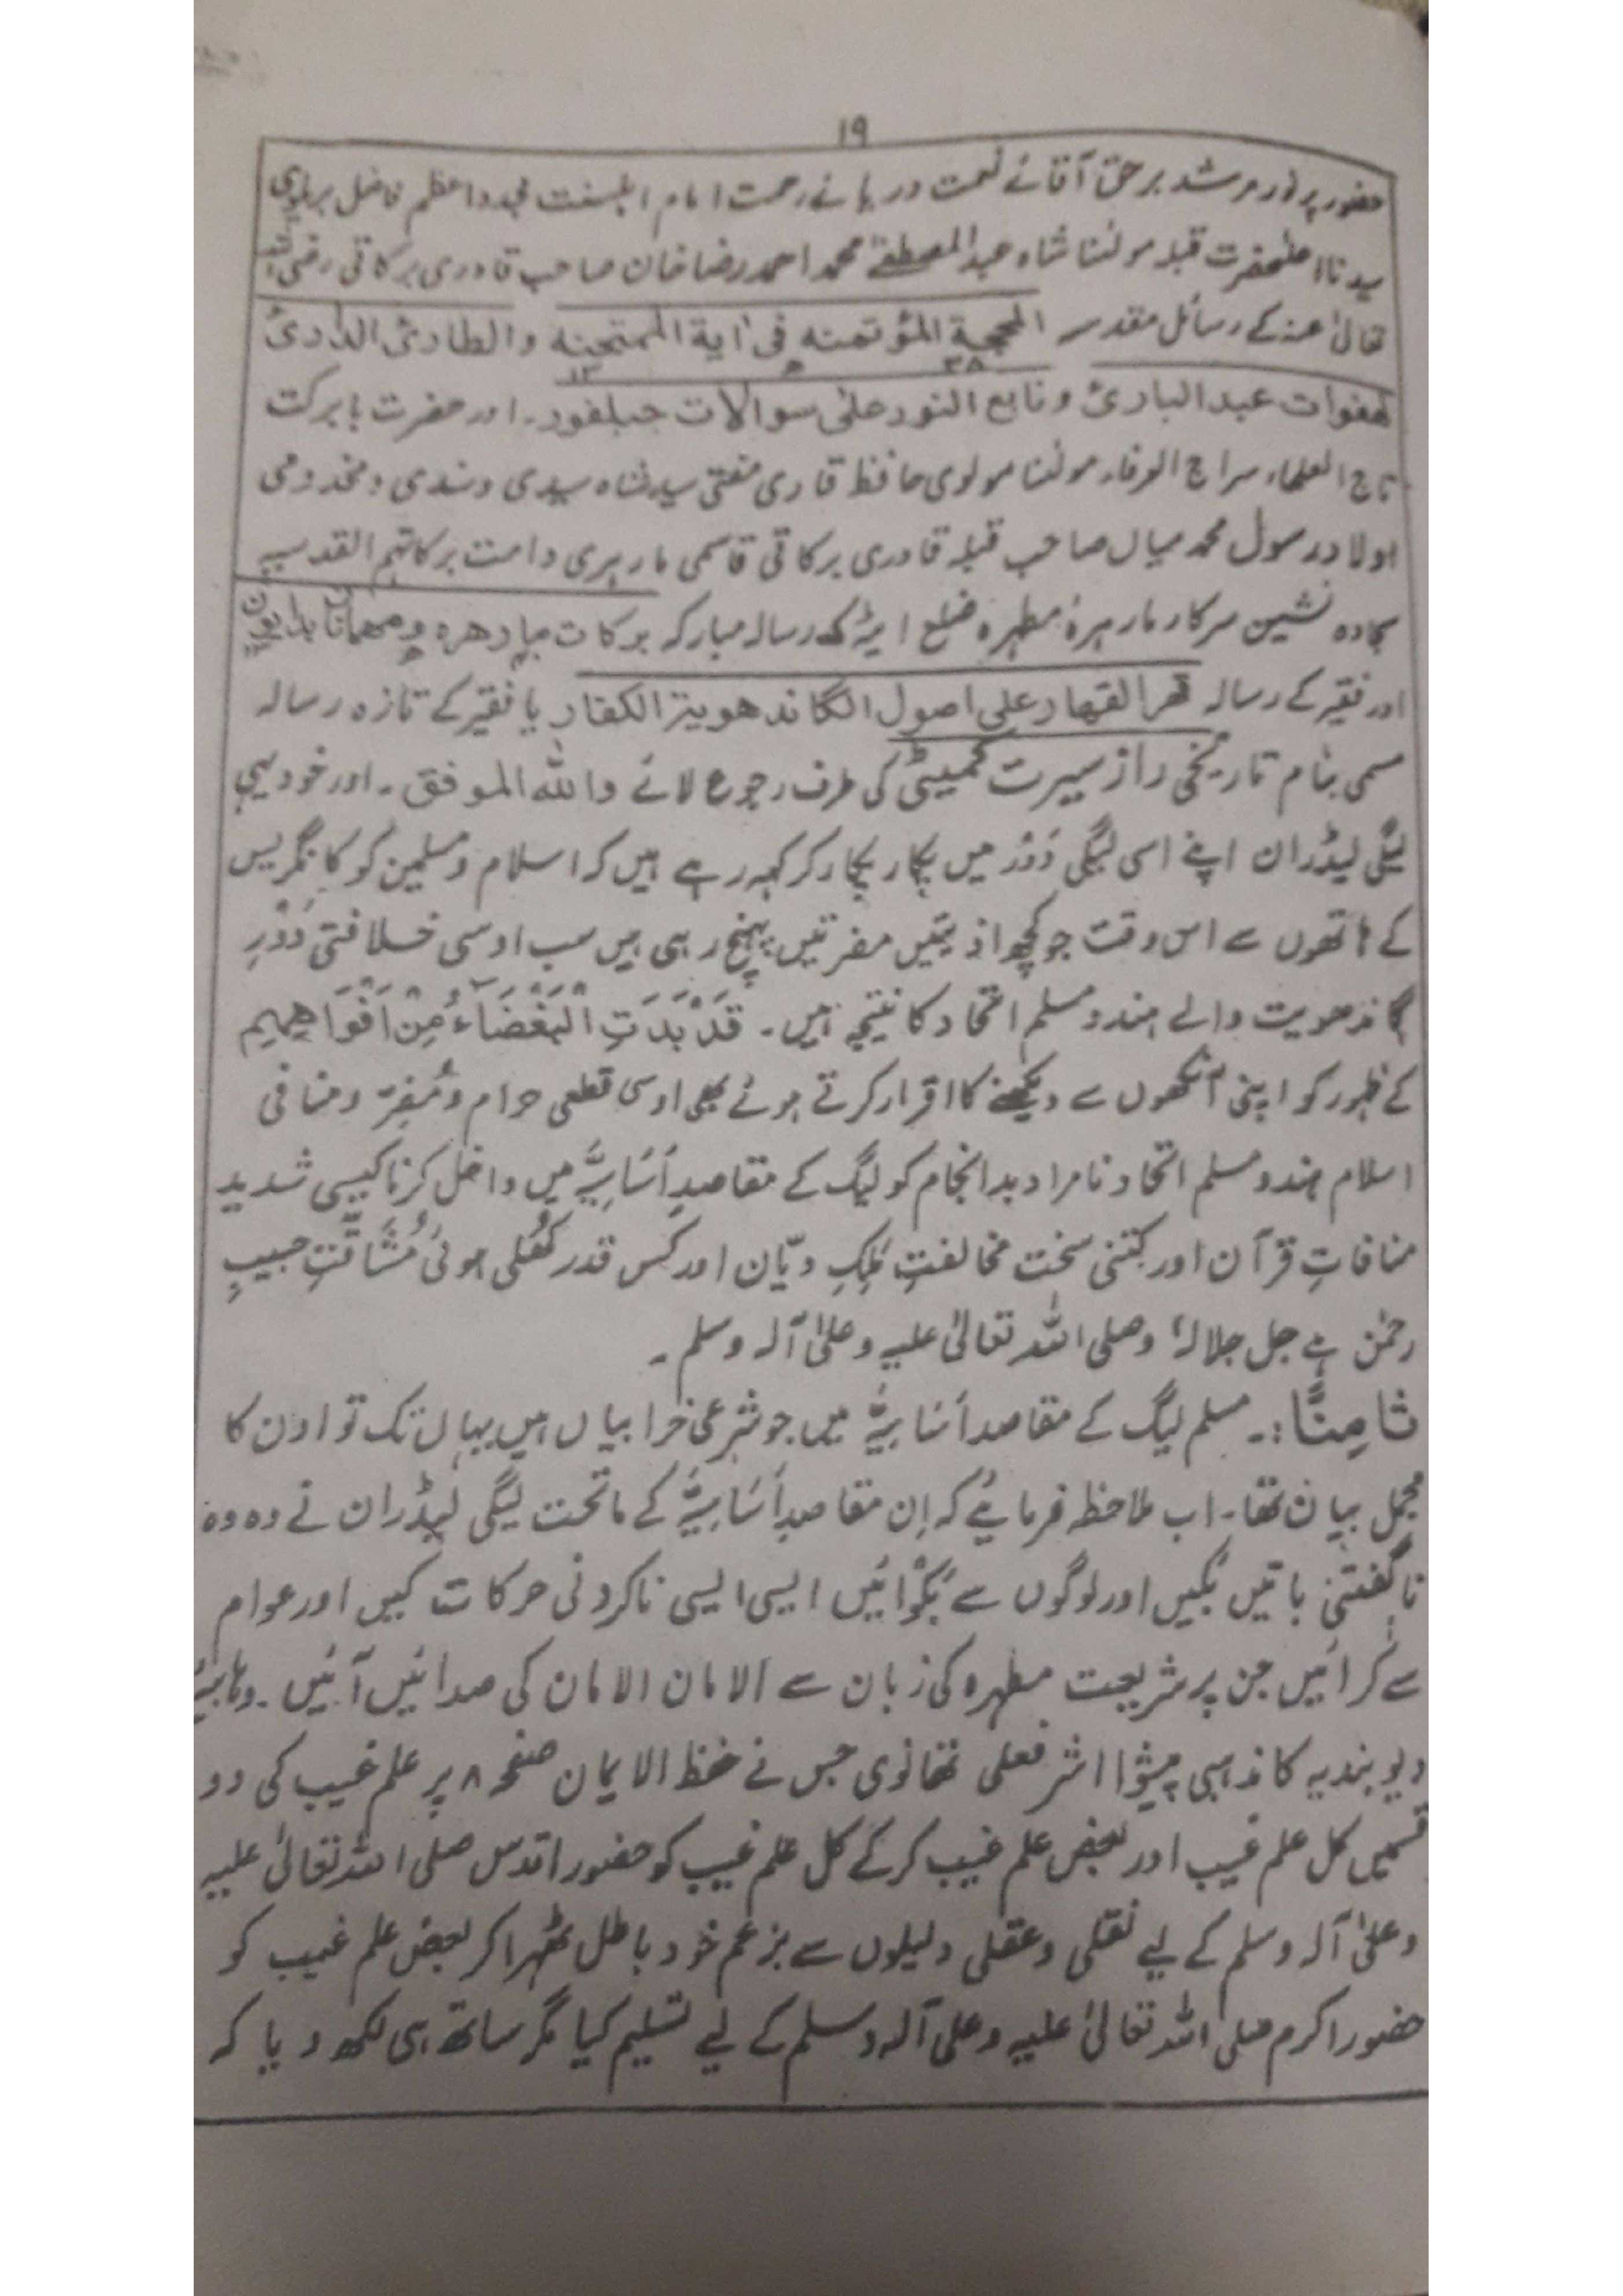 ۱۹
حضور پرنور مرشد برحق آقائے نعمت دریائے رحمت امام اہلسنت مجدد اعظم فاضل بریلوی
سیدنا اعلٰحضرت قبلہ مولٰنا شاہ عبدالمصطفےٰ محمد احمد رضا خان صاحب قادری برکاتی رضی اللہ
تعالیٰ عنہ کے رسائل مقدسہ المحجۃ المؤتمنہ فی اٰیۃ الممتحنہ والطارئ الداری
لھفوات عبد الباری و نابع النور علی سوالات جبلفور۔ اور حضرت بابرکت
تاج العلماء سراج العرفاء مولٰنا مولوی حافظ قاری مفتی سید شاہ سیدی و سندی و مخدومی
اولاد رسول محمد میاں صاحب قبلہ قادری برکاتی قاسمی مارہری دامت برکاتہم القدسیہ
سجادہ نشین سرکار مارہرۂ مطہرہ ضلع ایٹہ کے رسالہ مبارکہ برکات مارھرہ و مھمانان بدایون
اور فقیر کے رسالہ قھر القھار علی اصول الگاندھویۃ الکفار یا فقیر کے تازہ رسالہ
مسمی بنام تاریخی راز سیرت کمیٹی کی طرف رجوع لائے واللہ الموفق۔ اور خود یہی
لیگی لیڈران اپنے اسی لیگی دَوْر میں پکار پکار کر کہہ رہے ہیں کہ اسلام و مسلمین کو کانگریس
کے ہاتھوں سے اس وقت جو کچھ اذیتیں مضرتیں پہنچ رہی ہیں سب اوسی خلافتی دَوْرِ
گاندھویت والے ہندو مسلم اتحاد کا نتیجہ ہیں۔ قَدْ بَدَتِ الْبَغْضَآءُ مِنْ اَفْوَاھِھِمْ
کے ظہور کو اپنی آنکھوں سے دیکھنے کا اقرار کرتے ہوئے بھی اوسی قطعی حرام و مُضِرّ و منافی
اسلام ہندو مسلم اتحاد نامراد بد انجام کو لیگ کے مقاصدِ اَسَاسِیَّہ میں داخل کرنا کیسی شدید
منافاتِ قرآن اور کتنی سخت مخالفتِ مَلِکِ دیّان اور کس قدر کُھلی ہوئی مُشَاقَّتِ حبیبِ
رحمٰن ہے جل جلالہٗ وصلی اللہ تعالیٰ علیہ وعلیٰ آلہ وسلم۔
ثامِنًا:۔ مسلم لیگ کے مقاصد اَسَاسِیَّہ میں جو شرعی خرابیاں ہیں یہاں تک تو اون کا
مجمل بیان تھا۔ اب ملاحظہ فرمائیے کہ اِن مقاصدِ اَسَاسِیَّہ کے ماتحت لیگی لیڈران نے وہ وہ
ناگفتنی باتیں بکیں اور لوگوں سے بَکْوائیں ایسی ایسی ناکردنی حرکات کیں اور عوام
سے کرائیں جن پر شریعت مطہرہ کی زبان سے الامان الامان کی صدائیں آئیں۔ وہابیۂ
دیوبندیہ کا مذہبی پیشوا اشرفعلی تھانوی جس نے حفظ الایمان صفحہ ۸ پر علم غیب کی دو
قسمیں کل علم غیب اور بعض علم غیب کر کے کل علم غیب کو حضور اقدس صلی اللہ تعالیٰ علیہ
وعلیٰ آلہ وسلم کے لیے نقلی وعقلی دلیلوں سے بزعم خود باطل ٹھہرا کر بعض علم غیب کو
حضور اکرم صلی اللہ تعالیٰ علیہ وعلیٰ آلہ وسلم کے لیے تسلیم کیا مگر ساتھ ہی لکھ دیا کہ